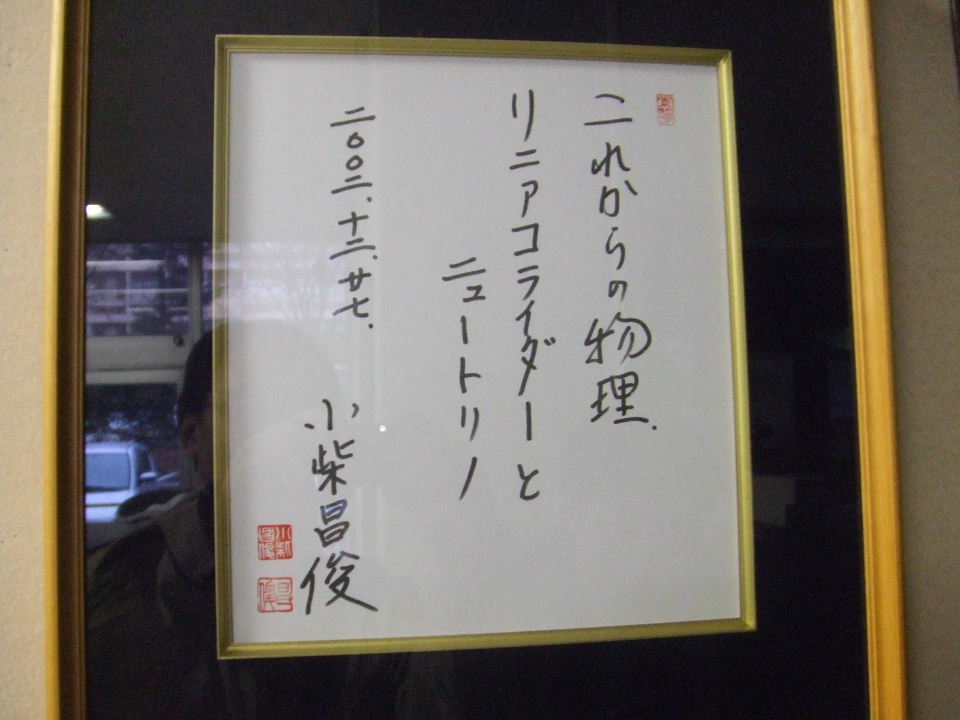 これからの物理.
リニアコライダーと
ニュートリノ
二〇〇二.十二.廿七.
小柴昌俊